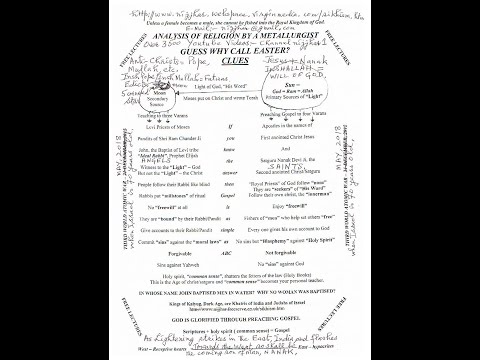 http://www.nijjhar.webspace.virginmedia.com/sikhism.htm
Unless a female becomes a male, she cannot be fished into the Royal Kingdom of God.
E-mail:- nijjhar@gmail.com
ANALYSIS OF RELIGION BY A METALLURGIST
Over 3500 Youtube Videos - Channel nijjhar1
GUESS WHY CALL EASTER?
CLUES
FREE LECTURES
FREE LECTURES
Anti-Christs = Pope, Mullah, etc.
Jesus + Nanak
INSHALLAH =
WILL OF GOD.
Light of God, "His Word"
Moses
Secondary
Source
Sun =
God = Ram = Allah
Primary Sources of "Light"
Moses put on Christ and wrote Torah
Teaching to three Varans
Preaching Gospel to four Varans
Levi Priests of Moses
If
Apostles in the names of
Purohs of Sri Ram Chander Ji
you
First anointed Christ Jesus
John, the Baptist of Levi tribe
know
And
"Ideal Rabbi", Prophet Elijah
the
Satguru Nanak Devi Ji, the
ANGELS
SAINTS,
Witness to the "Light" = God
Second anointed Christ/Satguru
But not the "Light" = the Christ
answer
People follow their Rabbi like blind
then
"Royal Priests" of God follow "none"
They are "seekers" of "His Word"
Rabbis put "stiltuous" of ritual
Gospel
Follow their own christ, the "innerman"
No "freewill" at all
is
Enjoy "freewill"
They are "bound" by their Rabbi/Pandit
as
Fathers of "own" who help set others "free"
Give accounts to their Rabbi/Pandit
simple
Every one gives his own account to God
Commit "sins" against the "moral laws"
as
No sins but "Blasphemy" against "Holy Spirit"
Forgivable
ABC
Not Forgivable
Sins against Yahweh
No "sins" against God
Holy spirit, "common sense", shatters the fetters of the law (Holy Books)
This is the Age of christ/satguru and "common sense" becomes your personal teacher.
MAY, 2018
when Israel is 70 years old,
THIRD WORLD ATOMIC WAR
MAY 2018
when Israel is 70 years old,
THIRD WORLD ATOMIC WAR
IN WHOSE NAME JOHN BAPTISED MEN IN WATER? WHY NO WOMAN WAS BAPTISED?
Kings of Kalyug, Dark Age, are Khatris of India and Judahs of Israel
GOD IS GLORIFIED THROUGH PREACHING GOSPEL
Scriptures + holy spirit (common sense) = Gospel
As Lightening strikes in the East, India and flashes
towards the West so shall be
the coming of Son of Man, NANAK,
FREE LECTURES
FREE LECTURES
West = Receptive hearts
East = hypocrites